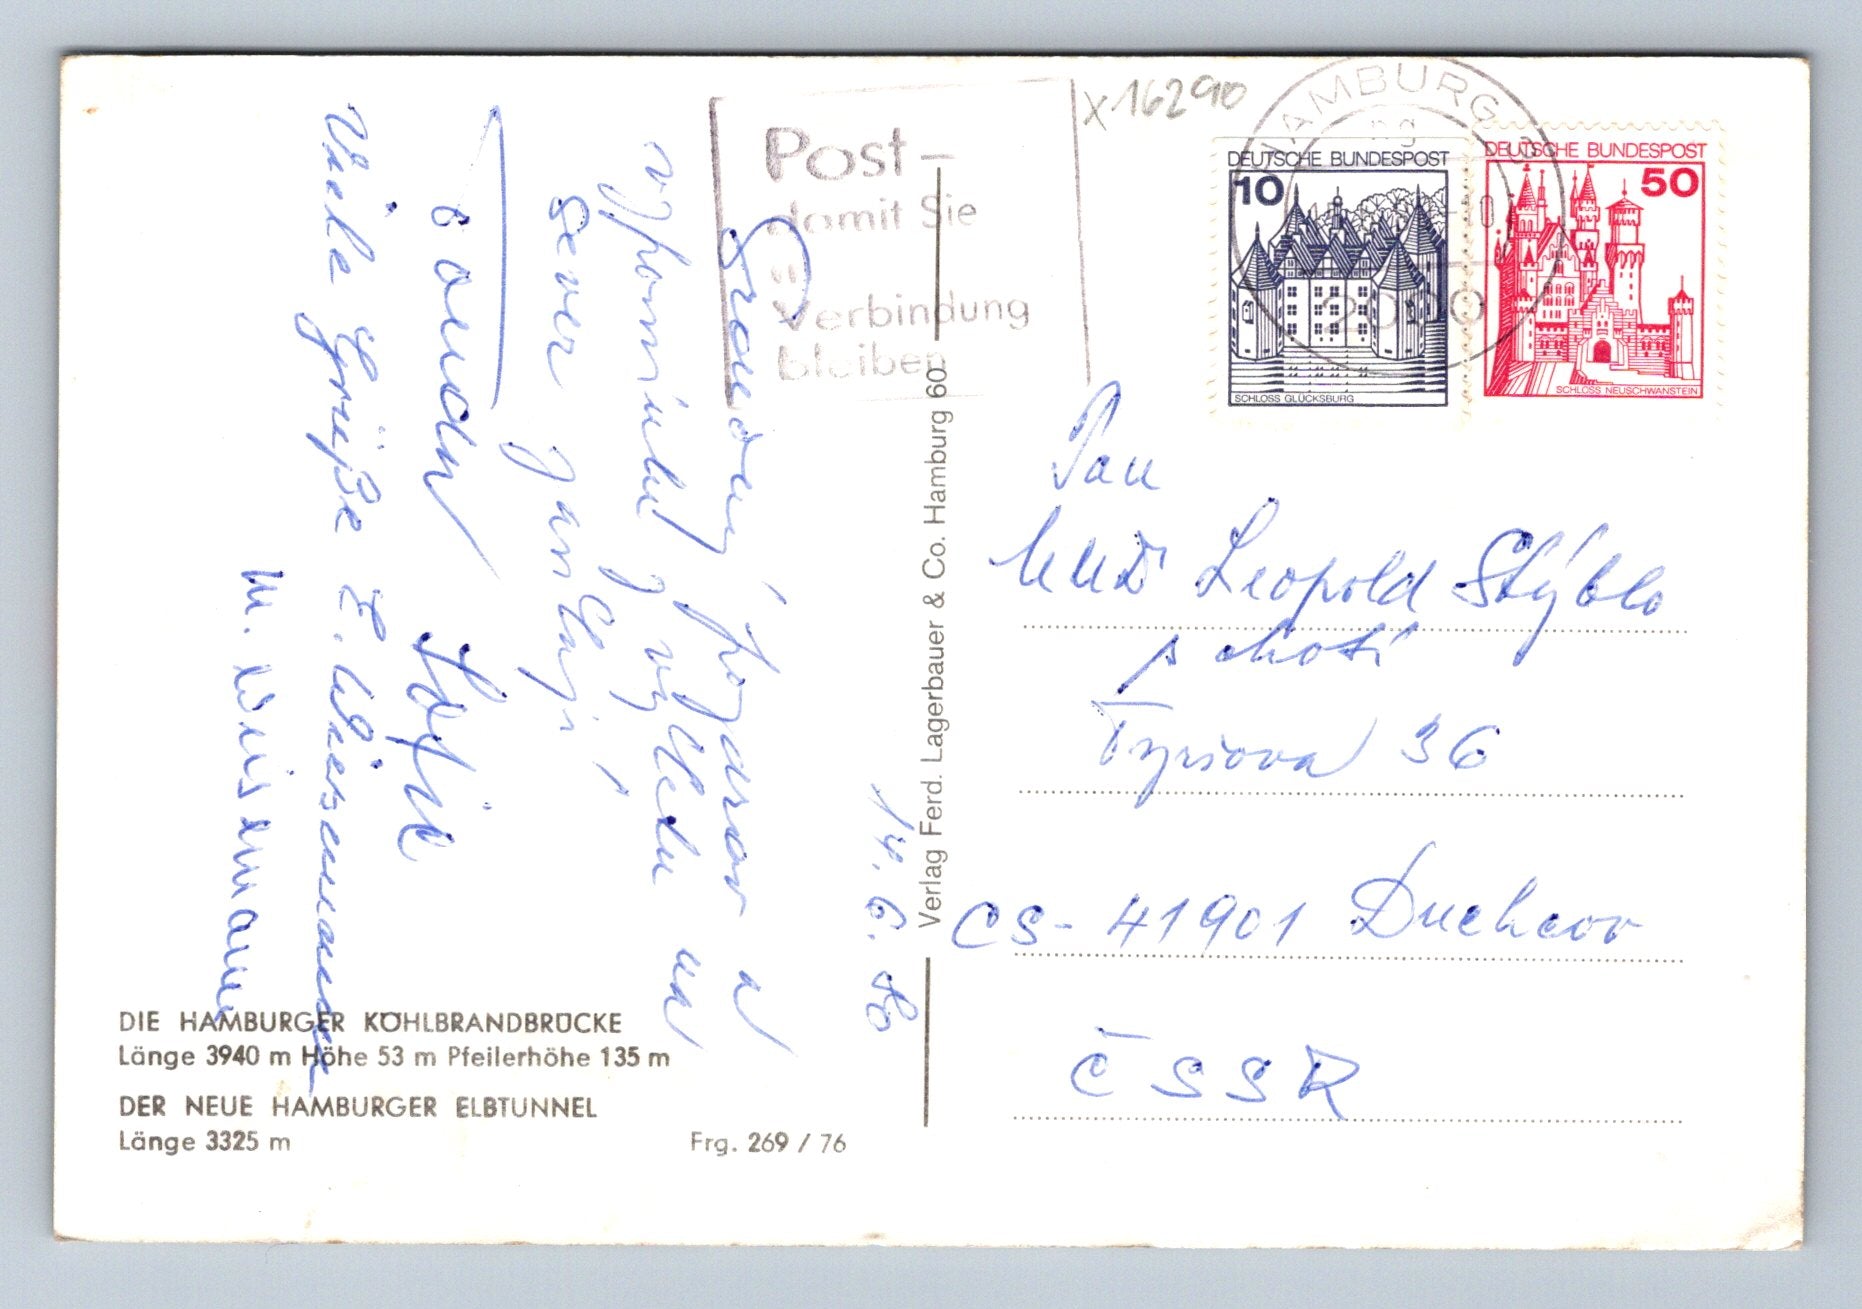 14. 6. 80
Srdečný pozdrav a
vzpomínku z výletu na
sever zasílají
Viele Grüße E. Wiessmann
M. Wiesemann
DIE HAMBURGER KÖHLBRANDBRÜCKE
Länge 3940 m Höhe 53 m Pfeilerhöhe 135 m
DER NEUE HAMBURGER ELBTUNNEL
Länge 3325 m
Frg. 269 / 76
Verlag Ferd. Lagerbauer & Co. Hamburg 60
Post –
damit Sie
in
Verbindung
bleiben
X 16290
HAMBURG
2000
DEUTSCHE BUNDESPOST
10
SCHLOSS GLÜCKSBURG
DEUTSCHE BUNDESPOST
50
SCHLOSS NEUSCHWANSTEIN
Pan
MUDr Leopold Stýblo
s chotí
Tyršova 36
CS- 41901 Duchcov
ČSSR